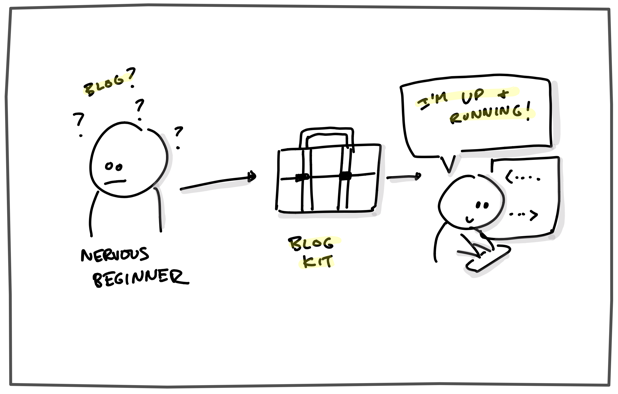 BLOG?
?
?
?
NERVOUS
BEGINNER
BLOG
KIT
I'M UP +
RUNNING!
<....
...>